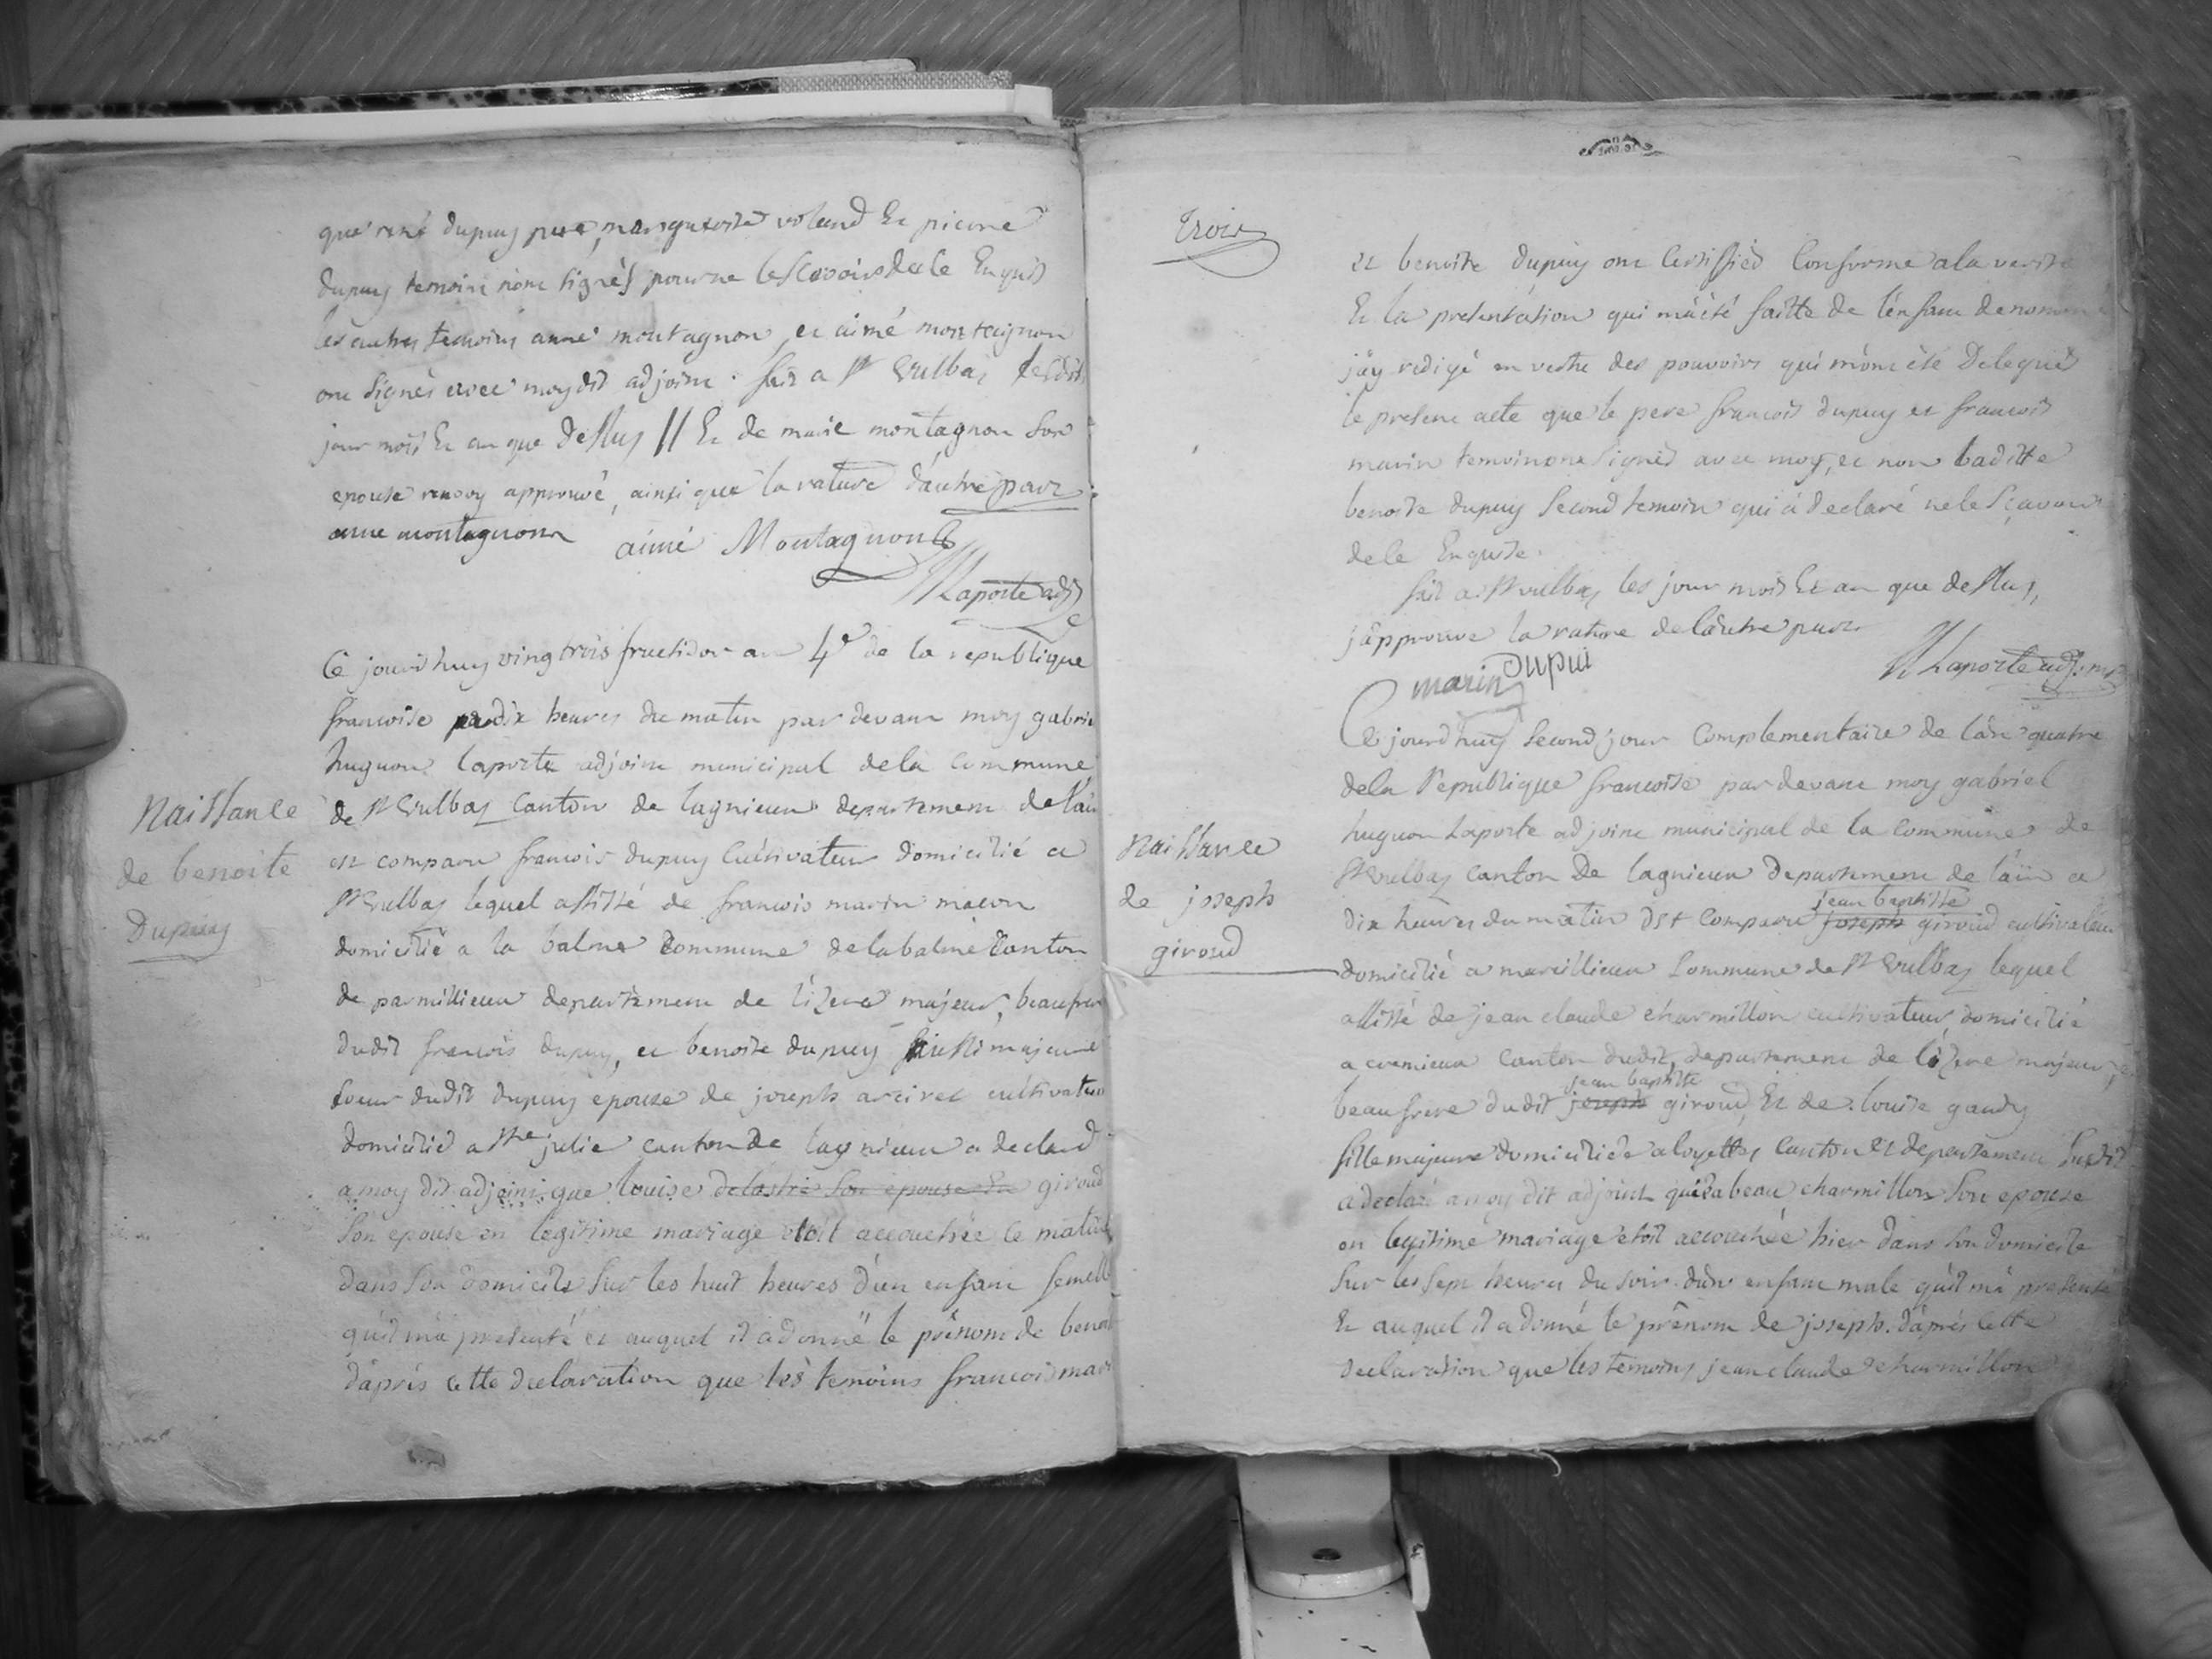 que rené dupuy pere, marguerite voland Et pierre
dupuy temoin nont signés pour ne les scavoirs de le Enquis
les autres temoins anne montagnon et aimé montaignon
ont signés avec moy dit adjoint. fait a St Vulbas lesdits
jour mois Et an que dessus // Et de marie montagnon son
epouse renvoy approuvé, ainsi que la rature d'autre part
anne montagnon aimé Montagnon
Laporte adj
Ce jourdhuy vingt trois fructidor an 4e de la republique
francoise a dix heures du matin par devant moy gabriel
huguon laporte adjoint municipal de la Commune
de St Vulbas Canton de lagnieux departement de l'ain
est comparu francois dupuy Cultivateur domicilié a
St Vulbas lequel assisté de francois marin macon
domicilié a la balme Commune de la balme Canton
de parmillieux departement de l'izere majeur, beaufrere
dudit francois dupuy, et benoite dupuy aussi majeure
soeur dudit dupuy epouse de joseph cultivateur
domicilié a Ste julie canton de lagnieux a declaré
a moy dit adjoint que louise son epouse En giroud
son epouse en legitime mariage etoit accouchée ce matin
dans son domicile sur les huit heures d'un enfant femelle
qu'il m'a presenté et auquel il a donné le prénom de benoite
d'aprés cette declaration que les temoins francois marin
Naissance
de benoite
Dupuy
Trois
et benoite dupuy ont Certiffiés Conforme a la verité
Et la presentation qui m'a été faitte de l'enfant denommé
j'ay redigé en vertu des pouvoirs qui m'ont été Delegués
le present acte que le pere francois dupuy et francois
marin temoin ont signés avec moy, et non laditte
benoite dupuy second temoin qui a declaré ne le sçavoir
de le Enquise.
fait a St vulbas les jour mois Et an que dessus,
j'approuve la rature de l'autre part
marin Dupui Laporte adj. mp
Ce jourd'huy second jour Complementaire de l'an quatre
de la Republique francoise par devant moy gabriel
huguon Laporte adjoint municipal de la Commune de
St Vulbas Canton De lagnieux Departement de l'ain a
jean baptiste
dix heures du matin est Comparu joseph giroud cultivateur
domicilié a marcillieux Commune de St Vulbas lequel
assisté de jean claude charmillon cultivateur, domicilié
a cremieux Canton dudit, departement de l'izere majeur,
jean baptiste
beaufrere dudit joseph giroud, Et de louise gandy
fille majeure domiciliée a loyettes Canton et departement susdit
a declaré a moy dit adjoint qu'izabeau charmillon son epouse
en legitime mariage étoit accouchée hier dans son domicile
sur les sept heures du soir d'un enfant male qu'il m'a presenté
Et auquel il a donné le prénom de joseph. d'aprés cette
declaration que les temoins jean claude charmillon
Naissance
de joseph
giroud